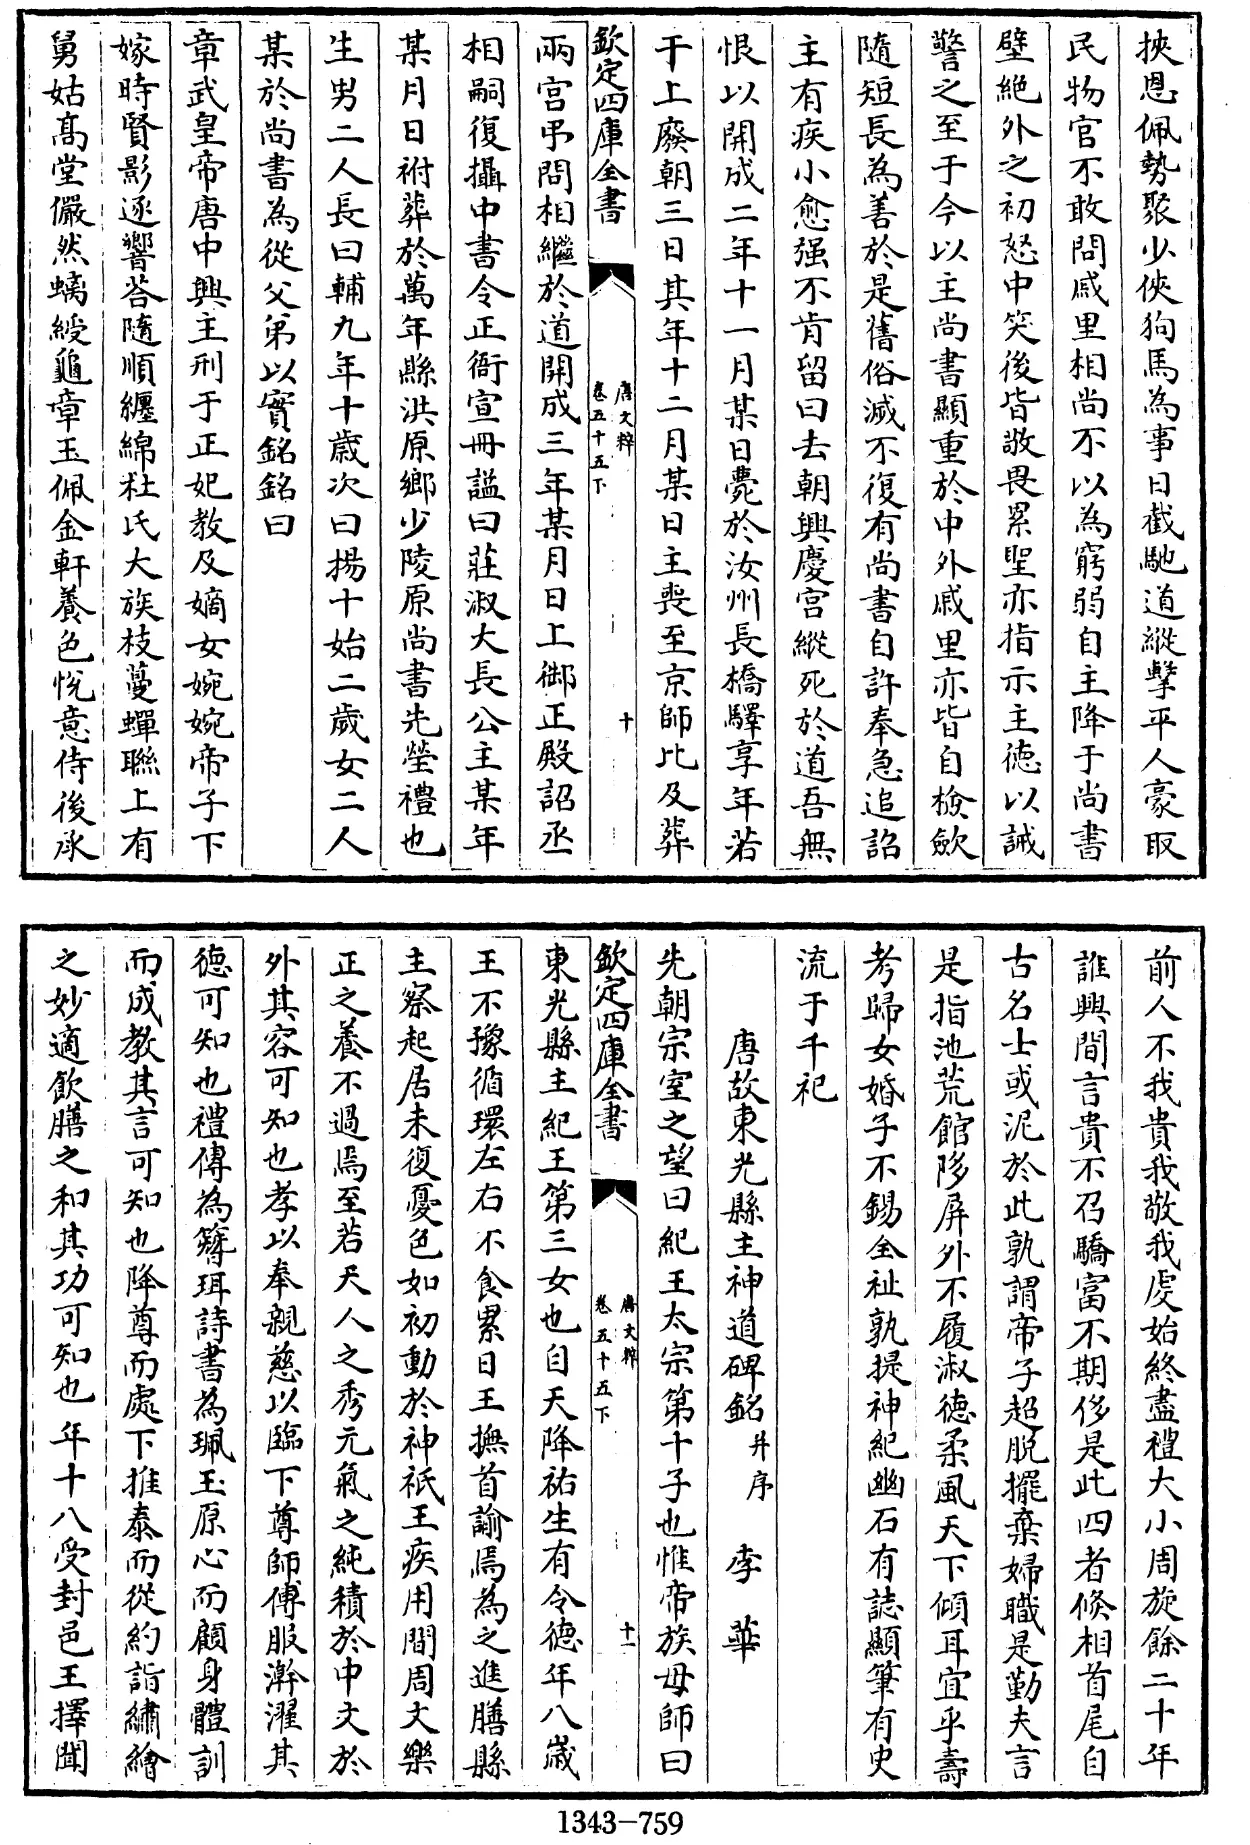 挾恩佩勢聚少俠狗馬為事日截馳道縱擊平人豪取
民物官不敢問戚里相尚不以為窮弱自主降于尚書
壁絶外之初怒中笑後皆敬畏累聖亦指示主徳以誡
警之至于今以主尚書顯重於中外戚里亦皆自檢歛
隨短長為善於是舊俗滅不復有尚書自許奉急追詔
主有疾小愈强不肯留曰去朝興慶宮縱死於道吾無
恨以開成二年十一月某日薨於汝州長橋驛享年若
干上廢朝三日其年十二月某日主喪至京師比及葬
欽定四庫全書
唐文粹
卷五十五下
十
兩宮弔問相繼於道開成三年某月日上御正殿詔丞
相嗣復攝中書令正衙宣冊謚曰莊淑大長公主某年
某月日祔葬於萬年縣洪原鄉少陵原尚書先塋禮也
生男二人長曰輔九年十歲次曰揚十始二歲女二人
某於尚書為從父弟以實銘銘曰
章武皇帝唐中興主刑于正妃教及嫡女婉婉帝子下
嫁時賢影逐響荅隨順纏綿杜氏大族枝蔓蟬聯上有
舅姑髙堂儼然螭綬龜章玉佩金軒養色悅意侍後承
前人不我貴我敬我䖍始終盡禮大小周旋餘二十年
誰興間言貴不召驕富不期侈是此四者倏相首尾自
古名士或泥於此孰謂帝子超脱擺棄婦職是勤夫言
是指池荒館陊屏外不履淑徳柔風天下傾耳宜乎壽
考歸女婚子不錫全祉孰提神紀幽石有誌顯筆有史
流于千祀
唐故東光縣主神道碑銘并序　李華
先朝宗室之望曰紀王太宗第十子也惟帝族母師曰
欽定四庫全書
唐文粹
卷五十五下
十一
東光縣主紀王第三女也自天降祐生有令德年八歲
王不豫循環左右不食累日王撫首諭焉為之進膳縣
主察起居未復憂色如初動於神祇王疾用間周文樂
正之養不過焉至若天人之秀元氣之純積於中文於
外其容可知也孝以奉親慈以臨下尊師傅服澣濯其
德可知也禮傳為簪珥詩書為珮玉原心而顧身體訓
而成教其言可知也降尊而處下推泰而從約詣繡繪
之妙適飲膳之和其功可知也年十八受封邑王擇聞
1343-759